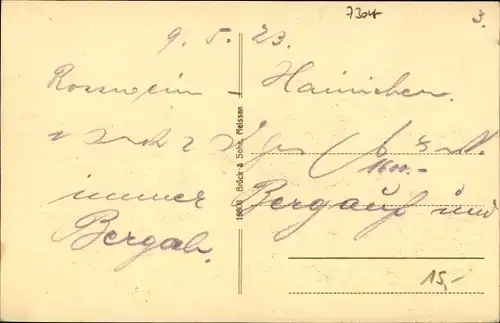 7304
3.
9. 5. 23.
Rosswein - Hainichen.
1600.-
immer Bergauf und
Bergab.
15,-
Brück & Sohn, Meissen